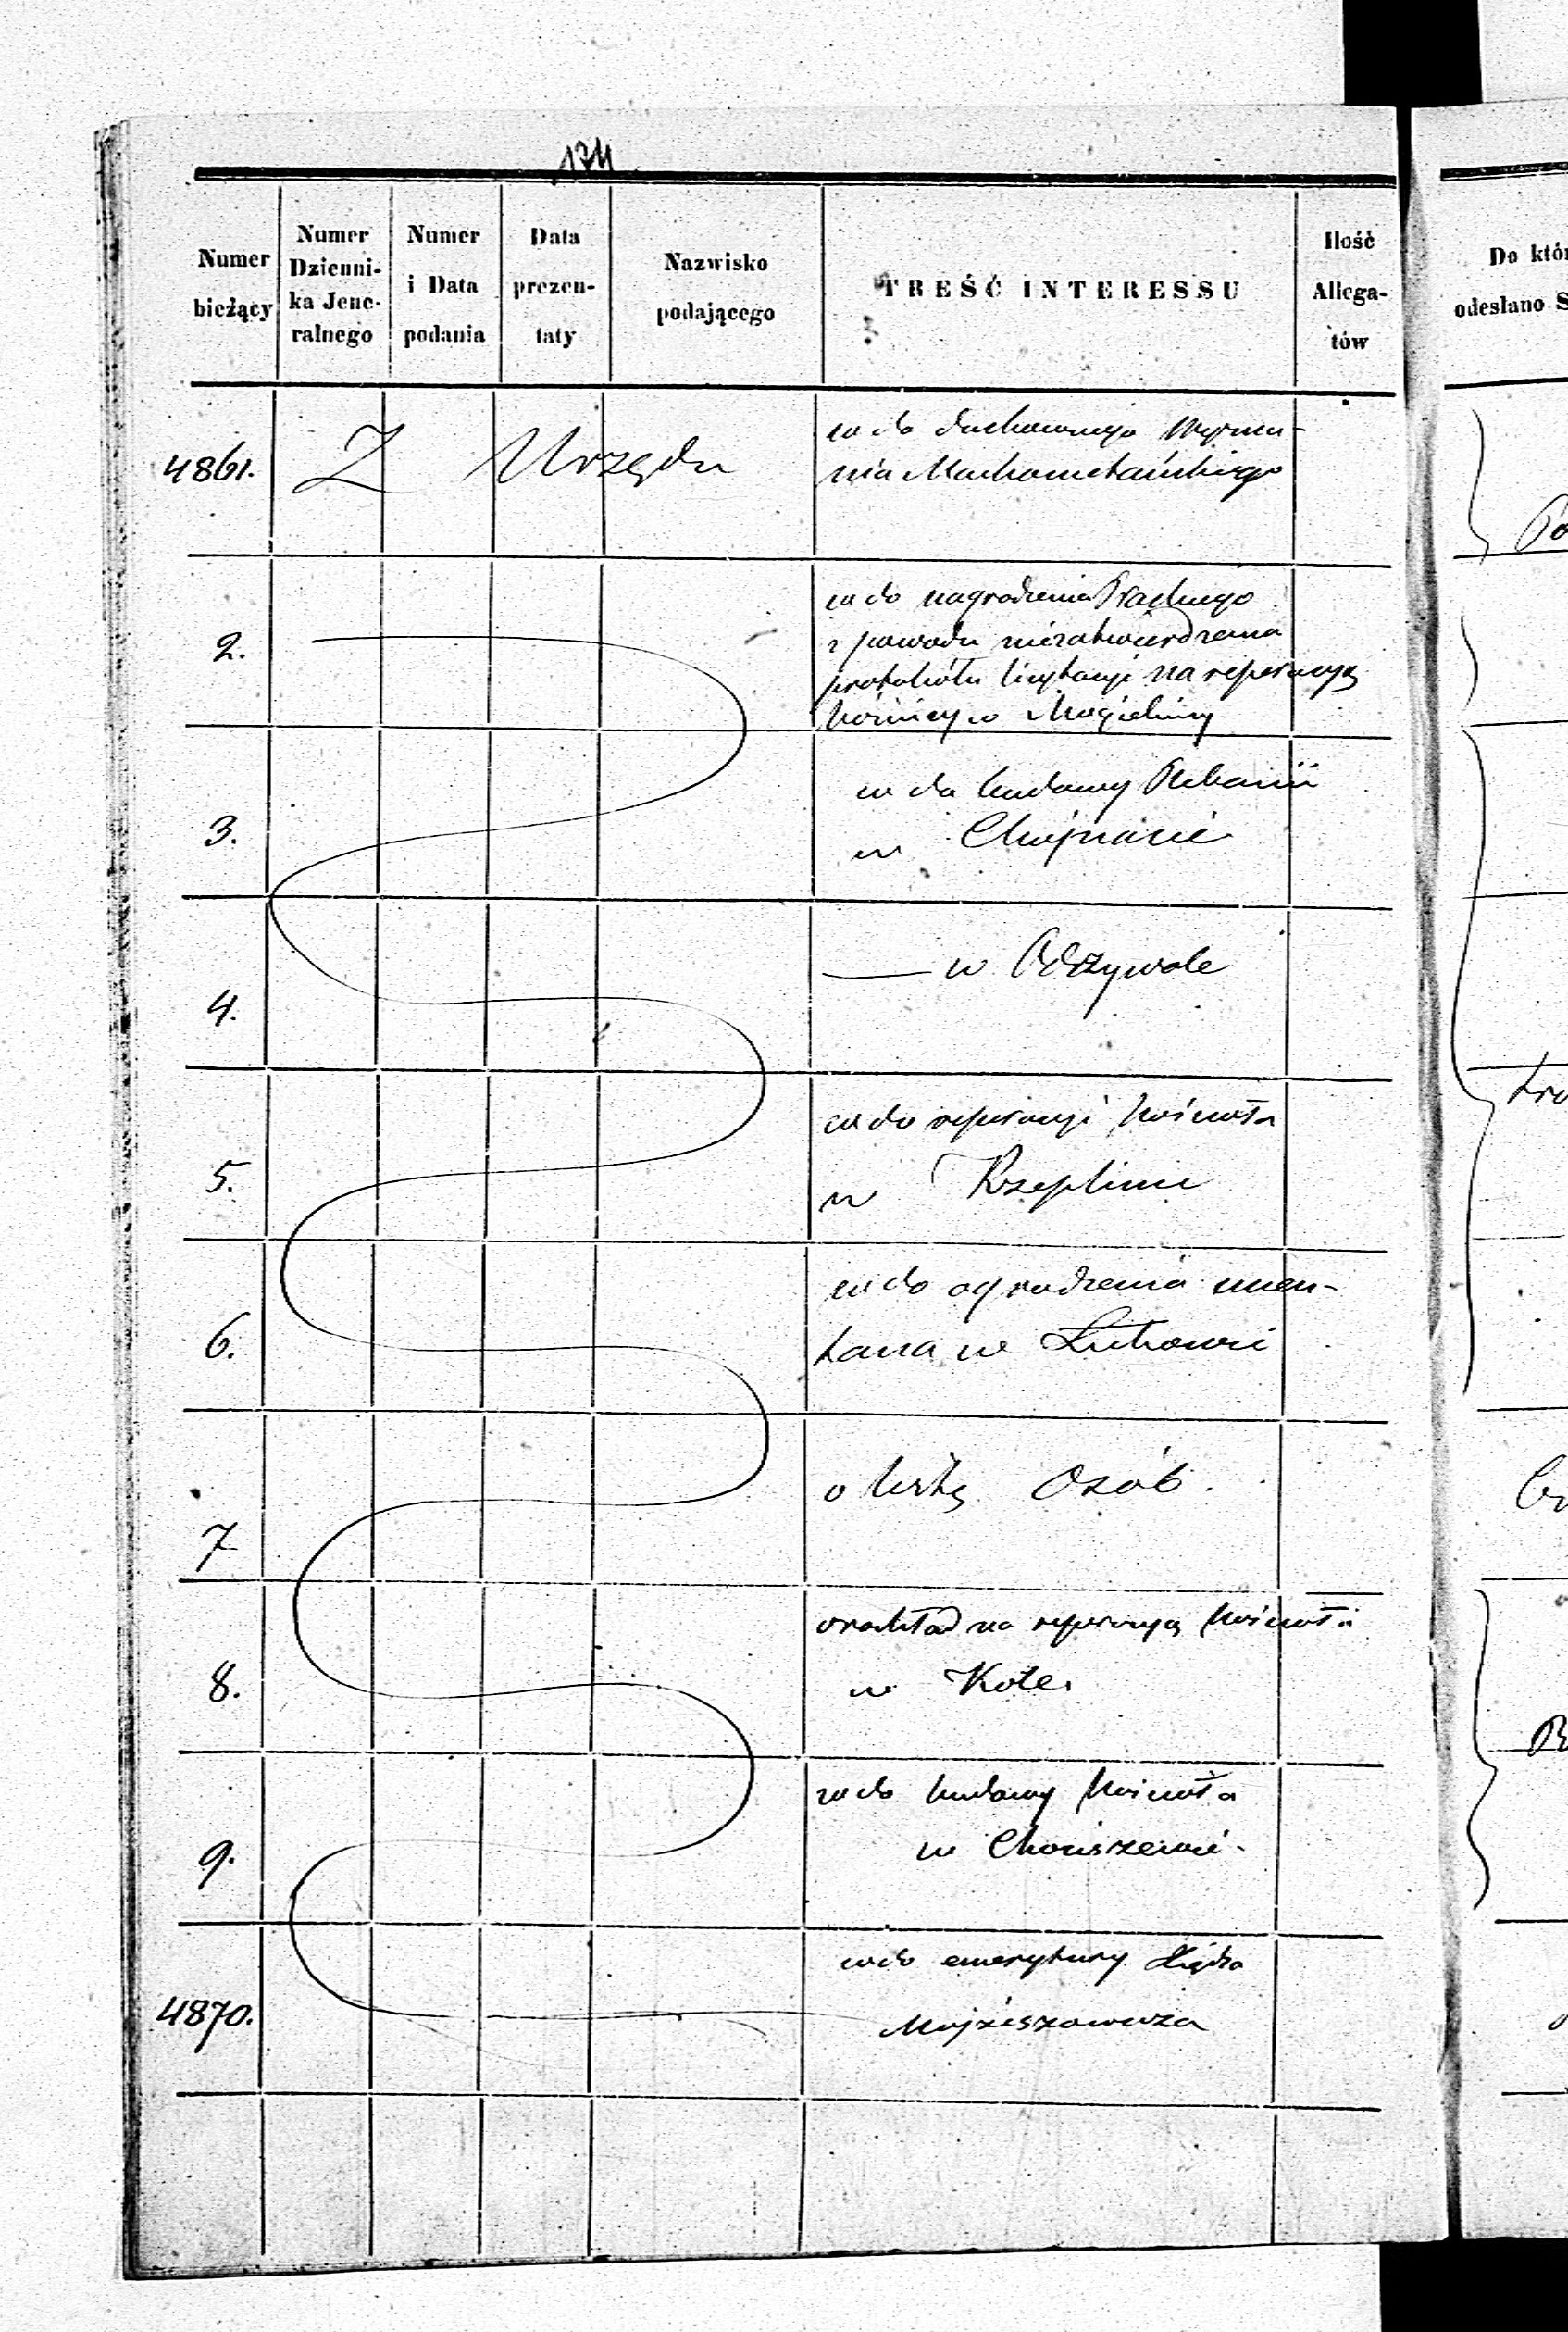 174
Numer bieżący
Numer Dzienni-ka Jene-ralnego
Numer i Data podania
Data prezen-taty
Nazwisko podającego
TREŚĆ INTERESSU
Ilość Allega-tów
Do któr
odesłano S
4861. Z Urzędu
wdo duchownego Wyzna-
nia Machometańskiego
2.
wdo nagrodzenia
z powodu niezatwierdzenia
protokółu licytacyi na reperacyą
w Mogielnicy
3.
wdo budowy Plebanii
w Chojnacie
4.
— w Odrzywole
5.
wdo reperacyi kościoła
w Rzeplinie
6.
wdo ogrodzenia cmen-
tarza w Łukowie
7
o listę Osób.
8.
o rozkład na reperacyą kościoła
w Kole.
9.
wdo budowy kościoła
w Chociszewie.
4870.
wdo emerytury Księdza